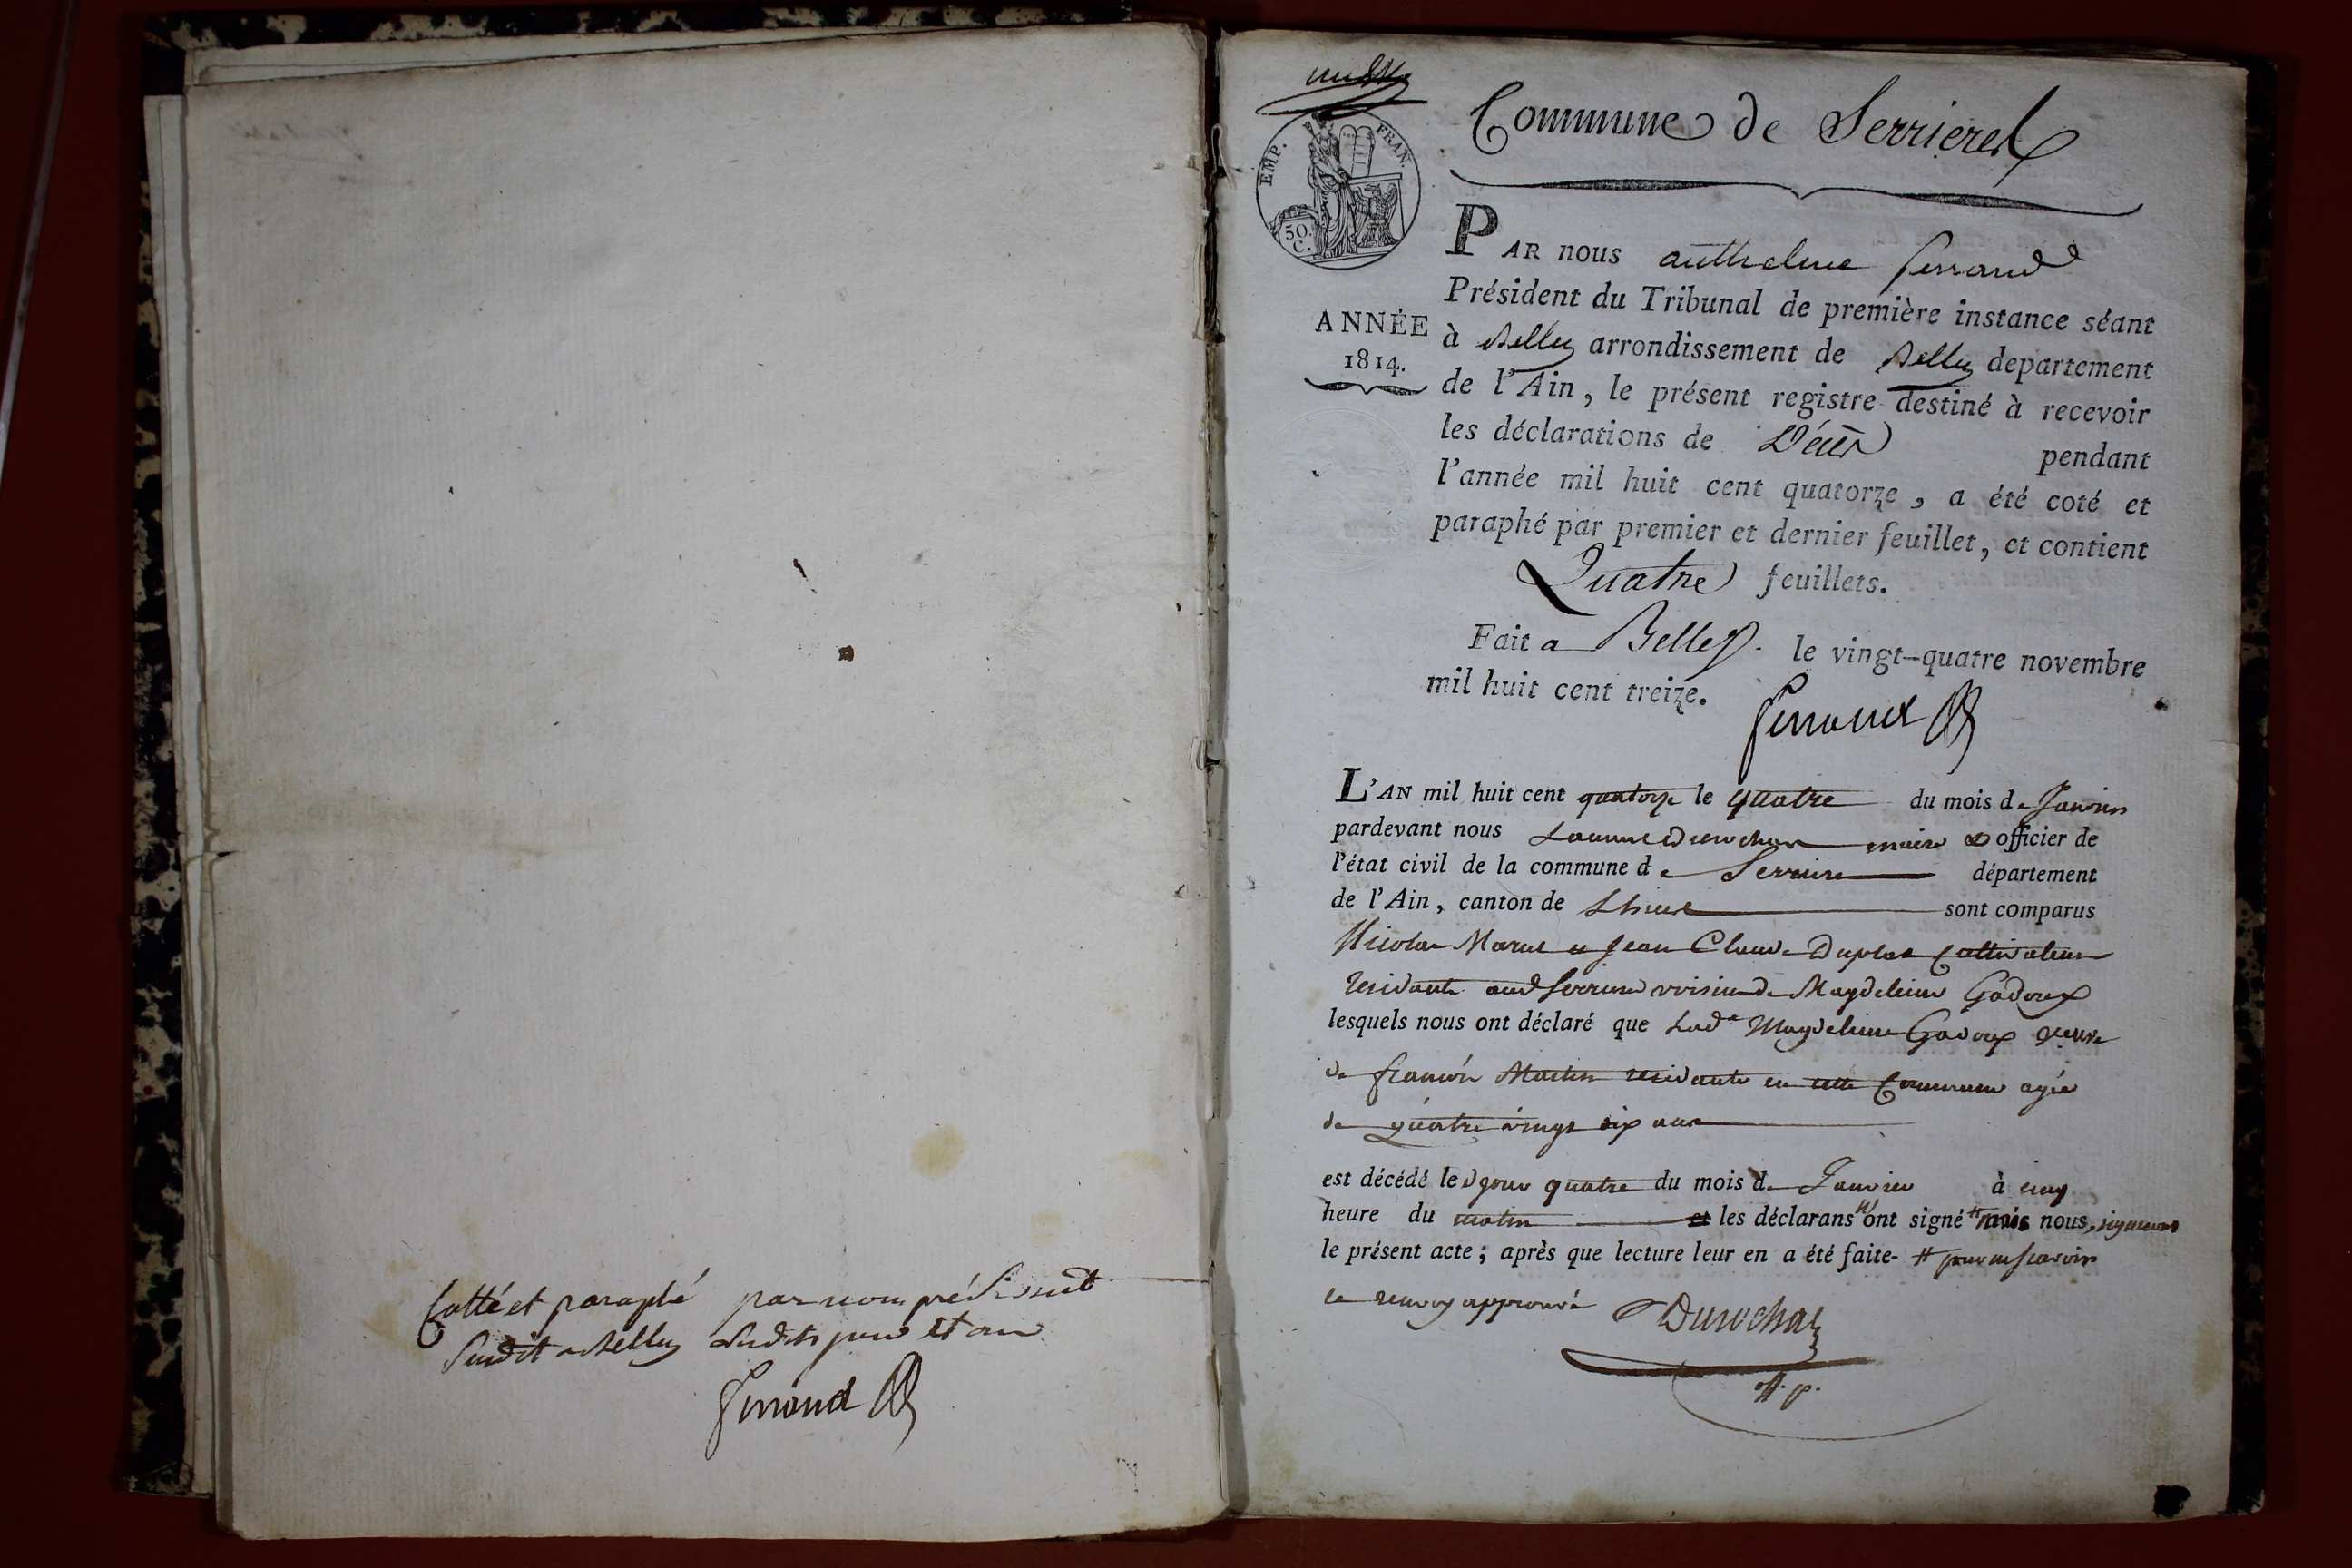 Cotté et paraphé par nous président
Susdit a Belley Susdits jour et an
Ferrand
EMP. FRAN.
50. C.
Commune de Serrieres
ANNÉE
1814.
PAR nous anthelme ferrand
Président du Tribunal de première instance séant
à Belley arrondissement de Belley departement
de l'Ain, le présent registre destiné à recevoir
les déclarations de Décès pendant
l'année mil huit cent quatorze, a été coté et
paraphé par premier et dernier feuillet, et contient
Quatre feuillets.
Fait a Belley. le vingt-quatre novembre
mil huit cent treize.
Ferrand
L'AN mil huit cent quatorze le quatre du mois de Janvier
pardevant nous Durochat maire & officier de
l'état civil de la commune de Serriere département
de l'Ain, canton de Lhuis sont comparus
Nicolas Maruc et Jean Claude Duplat Cultivateurs
residants aud Serriere voisins de Magdeleine Godoux
lesquels nous ont déclaré que Lade Magdeleine Godoux veuve
de françois Martin residante en cette Commune agée
de quatre vingt dix ans
est décédé le jour quatre du mois de Janvier à cinq
heure du matin et les déclarans n'ont signé # mais nous, signerons
le présent acte; après que lecture leur en a été faite- # pour ne scavoir
le renvoy approuvé Durochat
off. p.